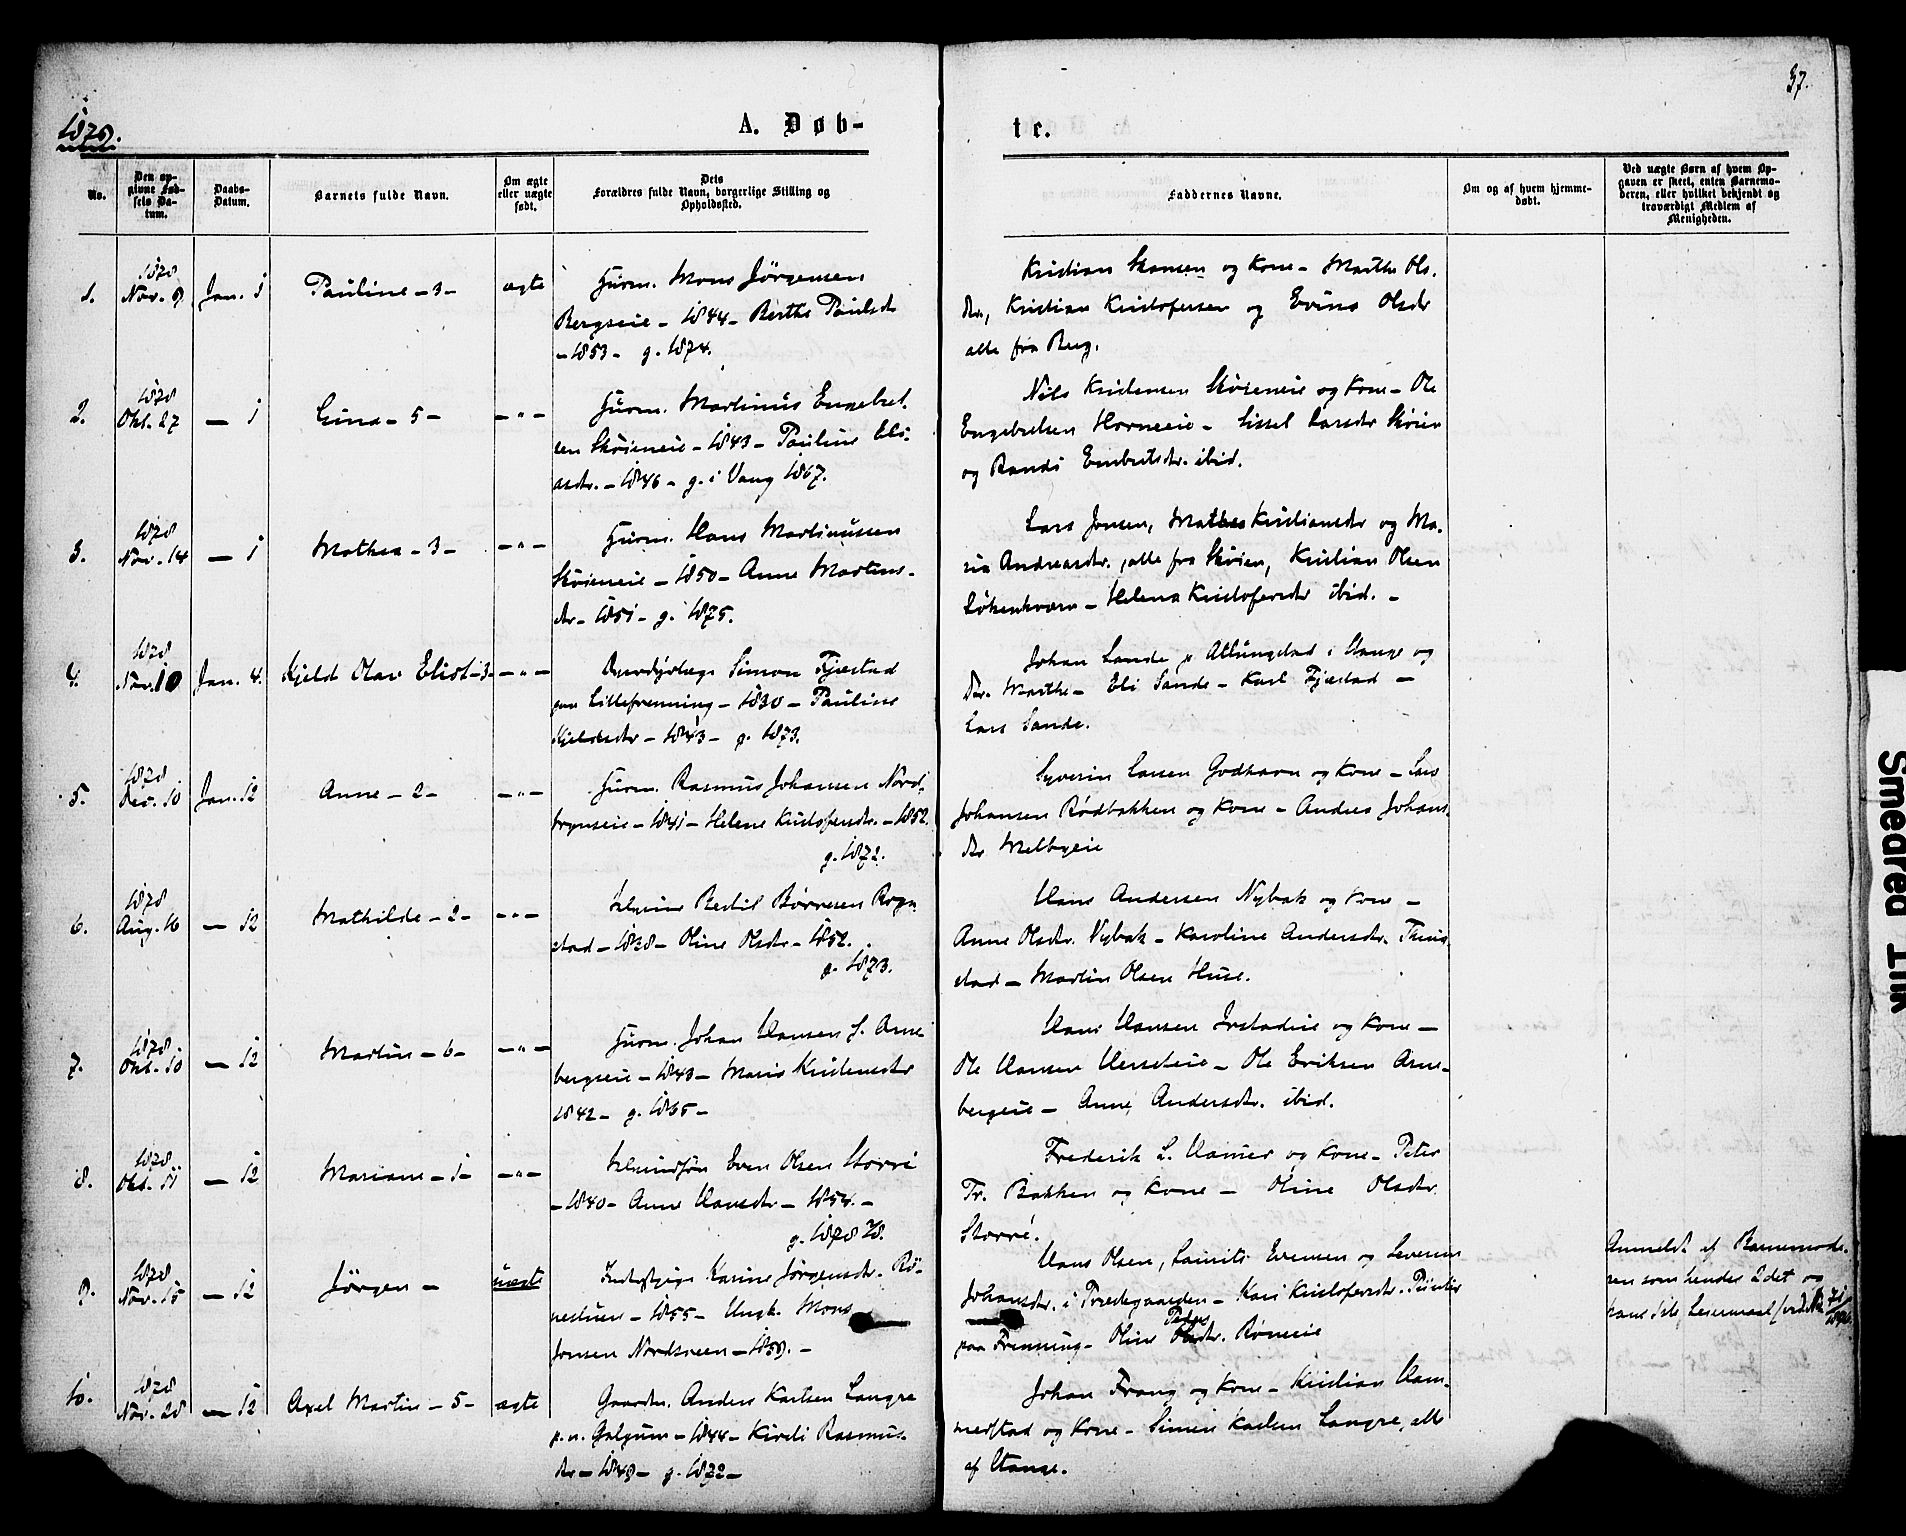 37.
1879.
A. Døb-
te.
No.
Den op-
givne Fød-
sels Da-
tum.
Daabs-
Datum.
Barnets fulde Navn.
Om ægte
eller uægte
født.
Dets
Forældres fulde Navn, borgerlige Stilling og
Opholdssted.
Faddernes Navne.
Om og af hvem hjemme-
døbt.
Ved uægte Børn af hvem Op-
gaven er skeet, enten Barnemo-
deren, eller hvilket bekjendt og
troværdigt Medlem af
Menigheden.
1.
1878
Nov. 9
Jan. 1
Pauline - 3 -
ægte
Huum. Mons Jörgensen
Bergseie - 1844 - Berthe Paulsdr
- 1853 - g. 1874.
Kristian Hansen og Kone - Marthe Ols.
dr, Kristian Kristofersen og Olsdr
alle fra Berg.
2.
1878
Okt. 27
— 1
Lina - 5 -
-"-
Huum. Martinus Engebret.
sen Skøieneie - 1843 - Pauline Eli.
asdr. - 1846 - g. i Vang 1867.
Nils Kristensen Skøieneie og Kone - Ole
Engebretsen Horneeie - Sissel Larsdr Skøien
og Randi Embretsdr. ibid.
3.
1878
Nov. 14
— 1
Mathea - 3 -
-"-
Huum. Hans Martinussen
Skøieneie - 1850 - Anne Martins-
dr - 1851 - g. 1875.
Lars Jonsen, Mathea Kristiansdr og Ma-
ria Andreasdr., alle fra Skøien, Kristian Olsen
Løkenkværn - Helena Kristofersdr ibid. -
4.
1878
Nov. 10
Jan. 4.
Kjeld Olav Eliot - 3 -
-"-
Dyrlæge Simon Fjæstad
paa Lillefrenning - 1830 - Pauline
Kjeldsdr - 1843 - g. 1873.
Johan Sande p. Atlungstad i Stange og
Dr. Marthe - Eli Sande - Karl Fjæstad -
Lars Sande.
5.
1878
Dec. 10
Jan. 12
Anne - 2 -
-"-
Huum. Rasmus Johansen Nord-
brynseie - 1841 - Helene Kristofersdr. - 1852.
g. 1872.
Syverin Larsen Godhavn og Kone - Lars
Johansen Rødbakken og Kone - Andrea Johans.
dr Melbyeie
6.
1878
Aug. 16
— 12
Mathilde - 2 -
-"-
Inderst Bertil Børresen Rogn
stad - 1838 - Oline Olsdr - 1852.
g. 1873.
Hans Andersen Nybak og Kone -
Anne Olsdr. Nybak - Karoline Andersdr.
stad - Martin Olsen Huse.
7.
1878
Okt. 10
— 12
Martin - 6 -
-"-
Huum. Johan Hansen S. Arne
bergseie - 1843 - Maria Kristensdr
1842 - g. 1865 -
Hans Hansen og Kone -
Ole Hansen - Ole Eriksen Arne-
bergeie - Anne Andersdr. ibid.
8.
1878
Okt. 11
— 12
Mariane - 1 -
-"-
Even Olsen Storré
- 1840 - Anne Hansdr - 1854. -
g. 1878
Frederik L. Hamer og Kone - Peter
Tr. Bakken og Kone - Oline Olsdr
Storré.
9.
1878
Nov. 15
— 12
Jørgen -
uægte
Karine Jørgensdr. Rö-
nestuen - 1855 - Ungk. Mons
Jonsen Nordsveen - 1859. -
Hans Olsen, Laurits Evensen og Severine
Johansdr. i Trædegaarden - Kari Kristofersdr.
paa Frenning - Oline Peders dr. Røneeie
Anmeldt af Barnemode-
ren som hendes 2det og
hans 1ste Leiermaal
10.
1878
Nov. 28
— 12
Axel Martin - 5 -
ægte
Gaardm. Anders Karlsen Langre
p. n. Galgum - 1844 - Kirsti Rasmus.
dr - 1849 - g. 1872 -
Johan Frang og Kone - Kristian Ham-
merstad og Kone - Simen Karlsen Langre, alle
af Stange.
Smeared Ink